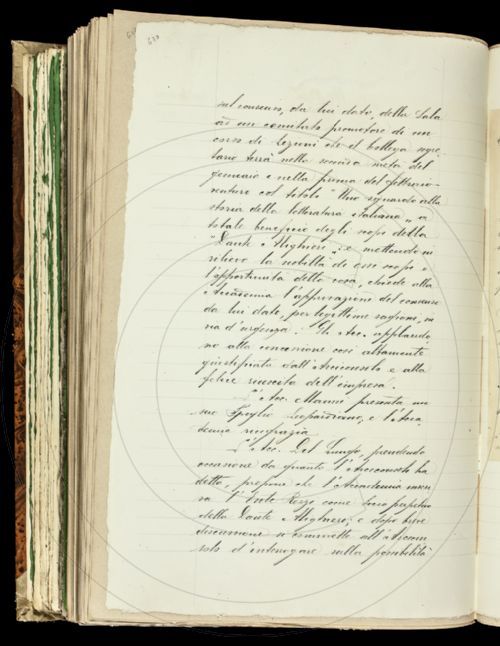 sul consenso, da lui dato, della Sala
ad un comitato promotore di un
corso di lezioni che il collega segre-
tario terrà nella seconda metà del
gennaio e nella prima del febbraio
venturo col titolo "Uno sguardo alla
storia della letteratura italiana" a
totale beneficio degli scopi della
"Dante Alighieri"; e mettendo in
rilievo la nobiltà di essi scopi e
l'opportunità della cosa, chiede alla
Accademia l'approvazione del consenso
da lui dato, per legittime ragioni, in
via d'urgenza. Gli Acc. applaudo-
no alla concessione così altamente
giustificata dall'Arciconsolo e alla
felice riuscita dell'impresa.
L'Acc. Mazzoni presenta un
suo Spoglio Leopardiano, e l'Acca-
demia ringrazia.
L'Acc. Del Lungo, prendendo
occasione da quanto l'Arciconsolo ha
detto, propone che l'Accademia
l'Ente come socio perpetuo
della Dante Alighieri; e dopo breve
discussione si commette all'Arcicon-
solo d'interrogare sulla possibilità